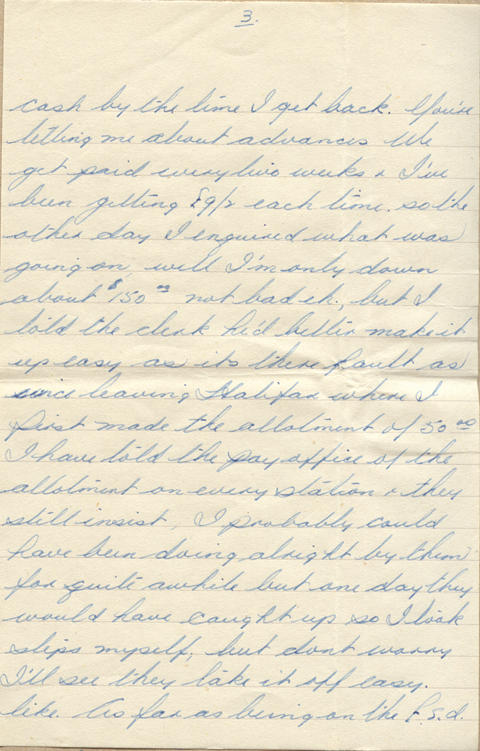 3.
cash by the time I get back. You're
telling me about advances We
get paid every two weeks & I've
been getting £9/2 each time. so the
other day I enquired what was
going on, well I'm only down
about $150 00 not bad eh., but I
told the clerk he'd better make it
up easy as its there fault as
since leaving Halifax where I
first made the allotment of 50 00
I have told the pay office of the
allotment on every station & they
still insist, I probably could
have been doing alright by them
for quite awhile but one day they
would have caught up so I took
steps myself, but dont worry
I'll see they take it off easy.
like. As far as being on the P.S.d.